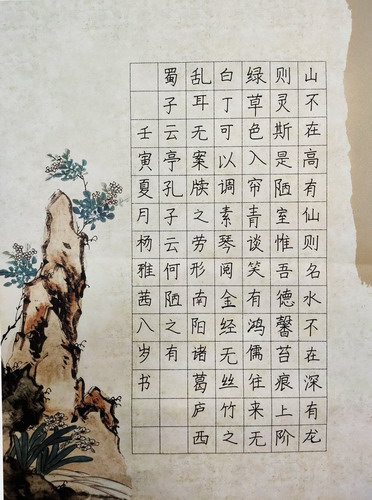 山不在高有仙则名水不在深有龙
则灵斯是陋室惟吾德馨苔痕上阶
绿草色入帘青谈笑有鸿儒往来无
白丁可以调素琴阅金经无丝竹之
乱耳无案牍之劳形南阳诸葛庐西
蜀子云亭孔子云何陋之有
壬寅夏月杨雅茜八岁书